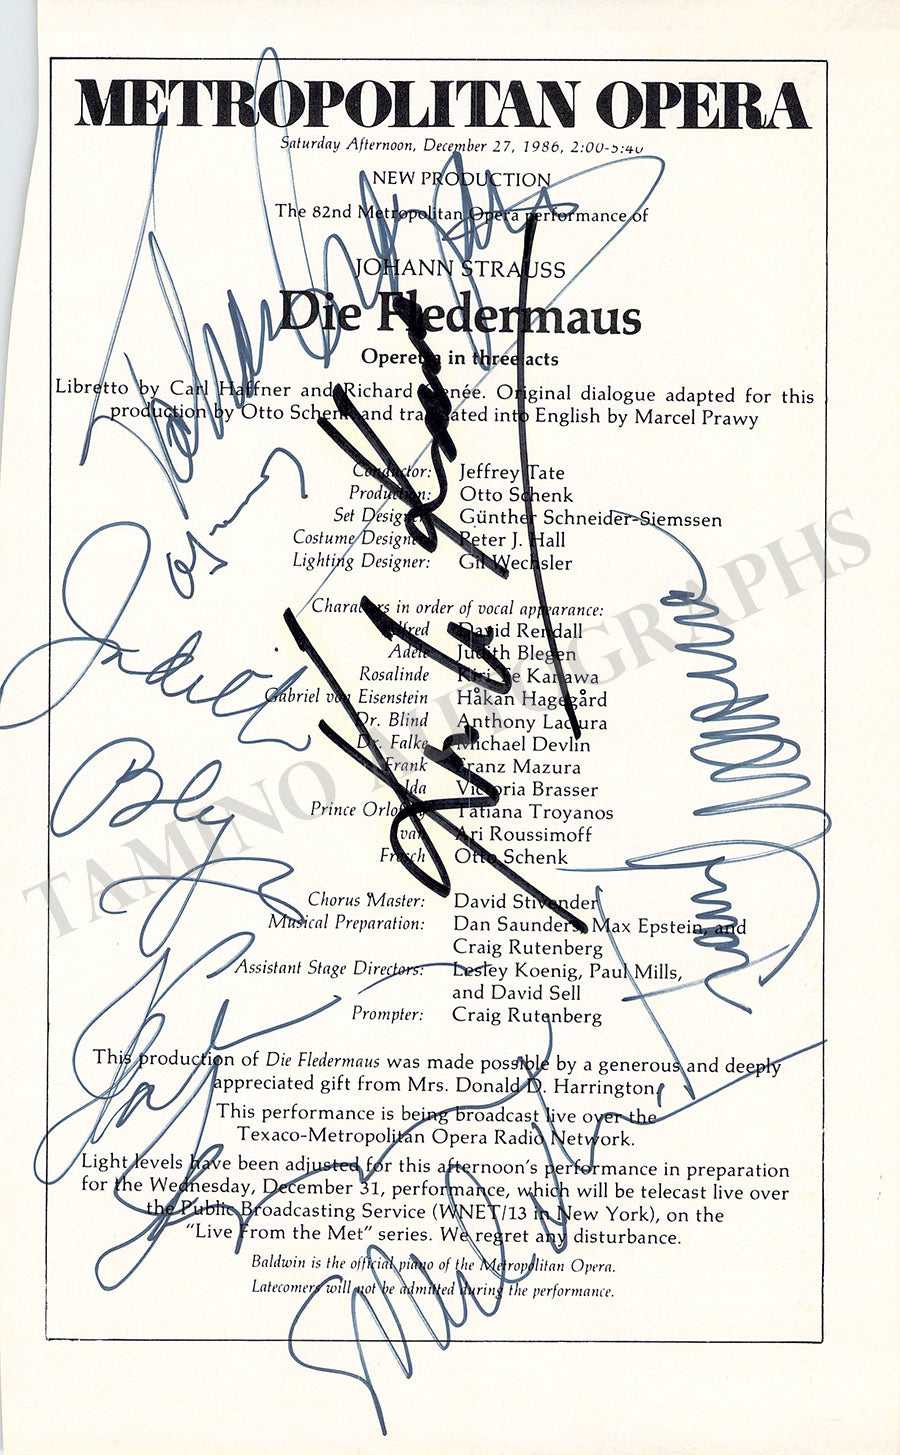 METROPOLITAN OPERA
Saturday Afternoon, December 27, 1986, 2:00-5:40
NEW PRODUCTION
The 82nd Metropolitan Opera performance of
JOHANN STRAUSS
Die Fledermaus
Operetta in three acts
Libretto by Carl Haffner and Richard Genée. Original dialogue adapted for this
production by Otto Schenk and translated into English by Marcel Prawy
Conductor: Jeffrey Tate
Production: Otto Schenk
Set Designer: Günther Schneider-Siemssen
Costume Designer: Peter J. Hall
Lighting Designer: Gil Wechsler
Characters in order of vocal appearance:
Alfred David Rendall
Adele Judith Blegen
Rosalinde Kiri Te Kanawa
Gabriel von Eisenstein Håkan Hagegård
Dr. Blind Anthony Laciura
Dr. Falke Michael Devlin
Frank Franz Mazura
Ida Victoria Brasser
Prince Orlofsky Tatiana Troyanos
Ivan Ari Roussimoff
Frosch Otto Schenk
Chorus Master: David Stivender
Musical Preparation: Dan Saunders, Max Epstein, and
Craig Rutenberg
Assistant Stage Directors: Lesley Koenig, Paul Mills,
and David Sell
Prompter: Craig Rutenberg
This production of Die Fledermaus was made possible by a generous and deeply
appreciated gift from Mrs. Donald D. Harrington.
This performance is being broadcast live over the
Texaco-Metropolitan Opera Radio Network.
Light levels have been adjusted for this afternoon's performance in preparation
for the Wednesday, December 31, performance, which will be telecast live over
the Public Broadcasting Service (WNET/13 in New York), on the
"Live From the Met" series. We regret any disturbance.
Baldwin is the official piano of the Metropolitan Opera.
Latecomers will not be admitted during the performance.
Judith
Kiri Te Kanawa
TAMINO AUTOGRAPHS